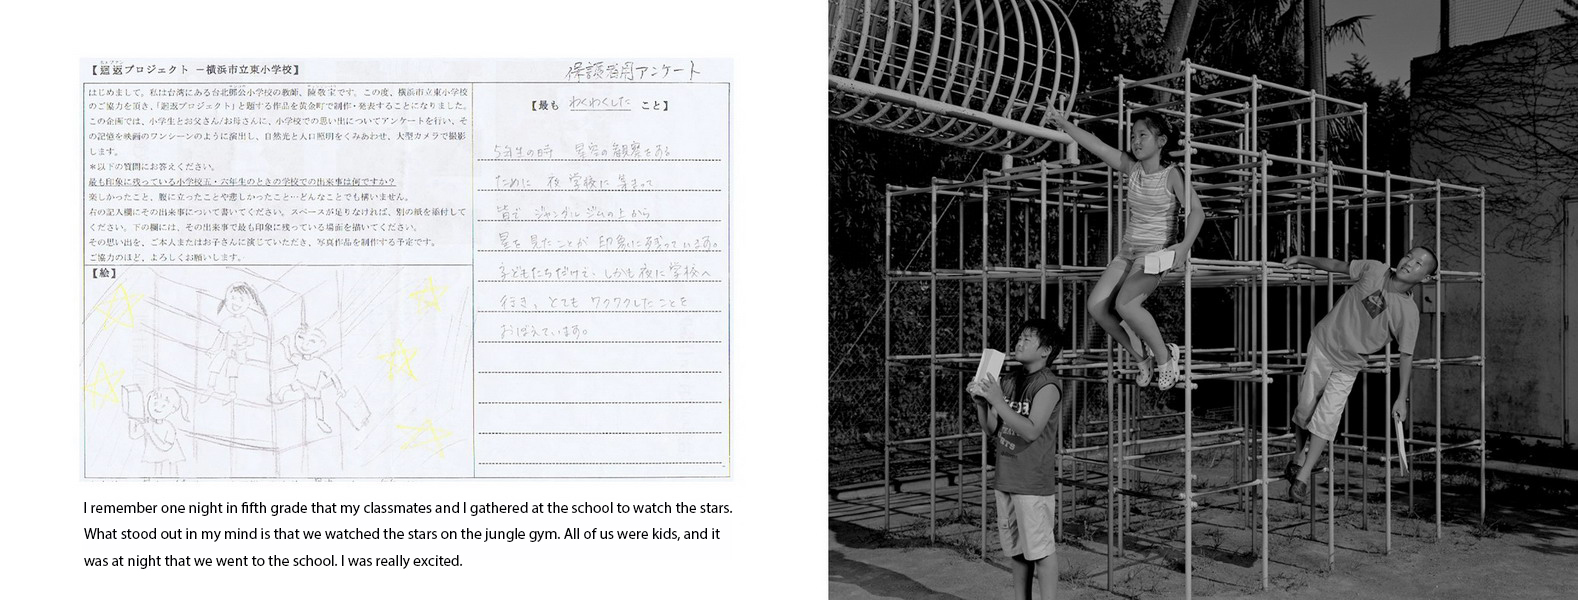 【廻返プロジェクト －横浜市立東小学校】
保護者用アンケート
はじめまして。私は台湾にある台北郷公小学校の教師、陳敬宝です。この度、横浜市立東小学校
のご協力を頂き、「廻返プロジェクト」と題する作品を黄金町で制作・発表することになりました。
この企画では、小学生とお父さん/お母さんに、小学校での思い出についてアンケートを行い、そ
の記憶を映画のワンシーンのように演出し、自然光と人口照明をくみあわせ、大型カメラで撮影
します。
＊以下の質問にお答えください。
最も印象に残っている小学校五・六年生のときの学校での出来事は何ですか？
楽しかったこと、腹に立ったことや悲しかったこと…どんなことでも構いません。
右の記入欄にその出来事について書いてください。スペースが足りなければ、別の紙を添付して
ください。下の欄には、その出来事で最も印象に残っている場面を描いてください。
その思い出を、ご本人またはお子さんに演じていただき、写真作品を制作する予定です。
ご協力のほど、よろしくお願いします。
【絵】
【最も わくわくした こと】
5年生の時 星空の観察をする
ために 夜 学校に 集まって
皆で ジャングルジムの上から
星を 見たことが 印象に残っています。
子どもたちだけで、しかも夜に学校へ
行き、とても ワクワクしたことを
おぼえています。
I remember one night in fifth grade that my classmates and I gathered at the school to watch the stars.
What stood out in my mind is that we watched the stars on the jungle gym. All of us were kids, and it
was at night that we went to the school. I was really excited.